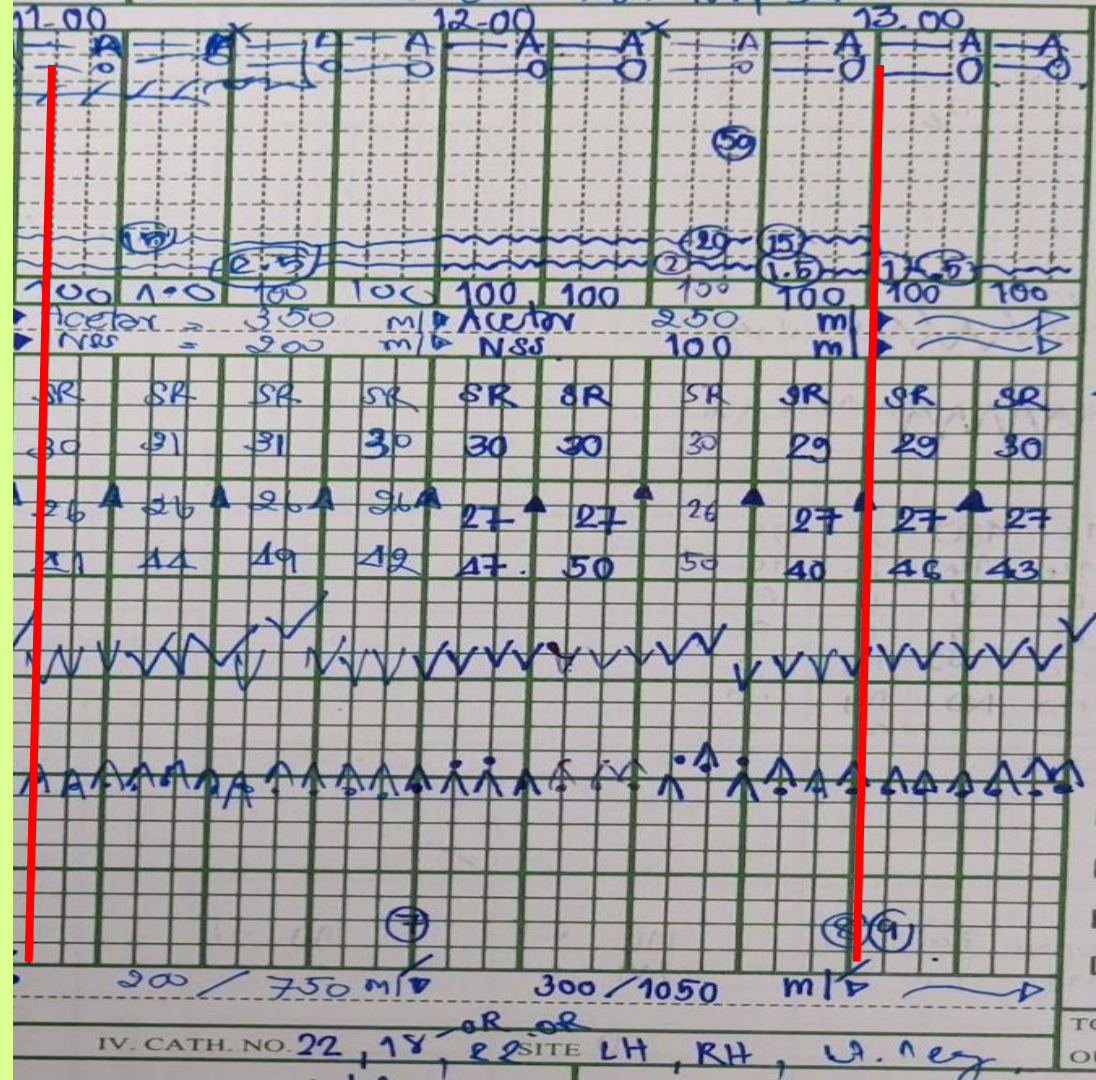 11-00 12-00 13.00
A A A A A A A A A
O O O O O O O O
50
20 15
2.5 2 1.5 1 .5
100 100 100 100 100 100 100 100 100
Acetar = 350 ml Acetar 250 ml
NSS = 200 ml NSS 100 ml
SR SR SR SR SR SR SR SR SR SR
30 31 31 30 30 30 30 29 29 30
26 26 26 26 27 27 26 27 27 27
44 49 42 47 50 50 40 46 43
7 8 9
200 / 750 ml 300 / 1050 ml
OR OR
IV. CATH. NO. 22, 18, 22 SITE LH, RH,